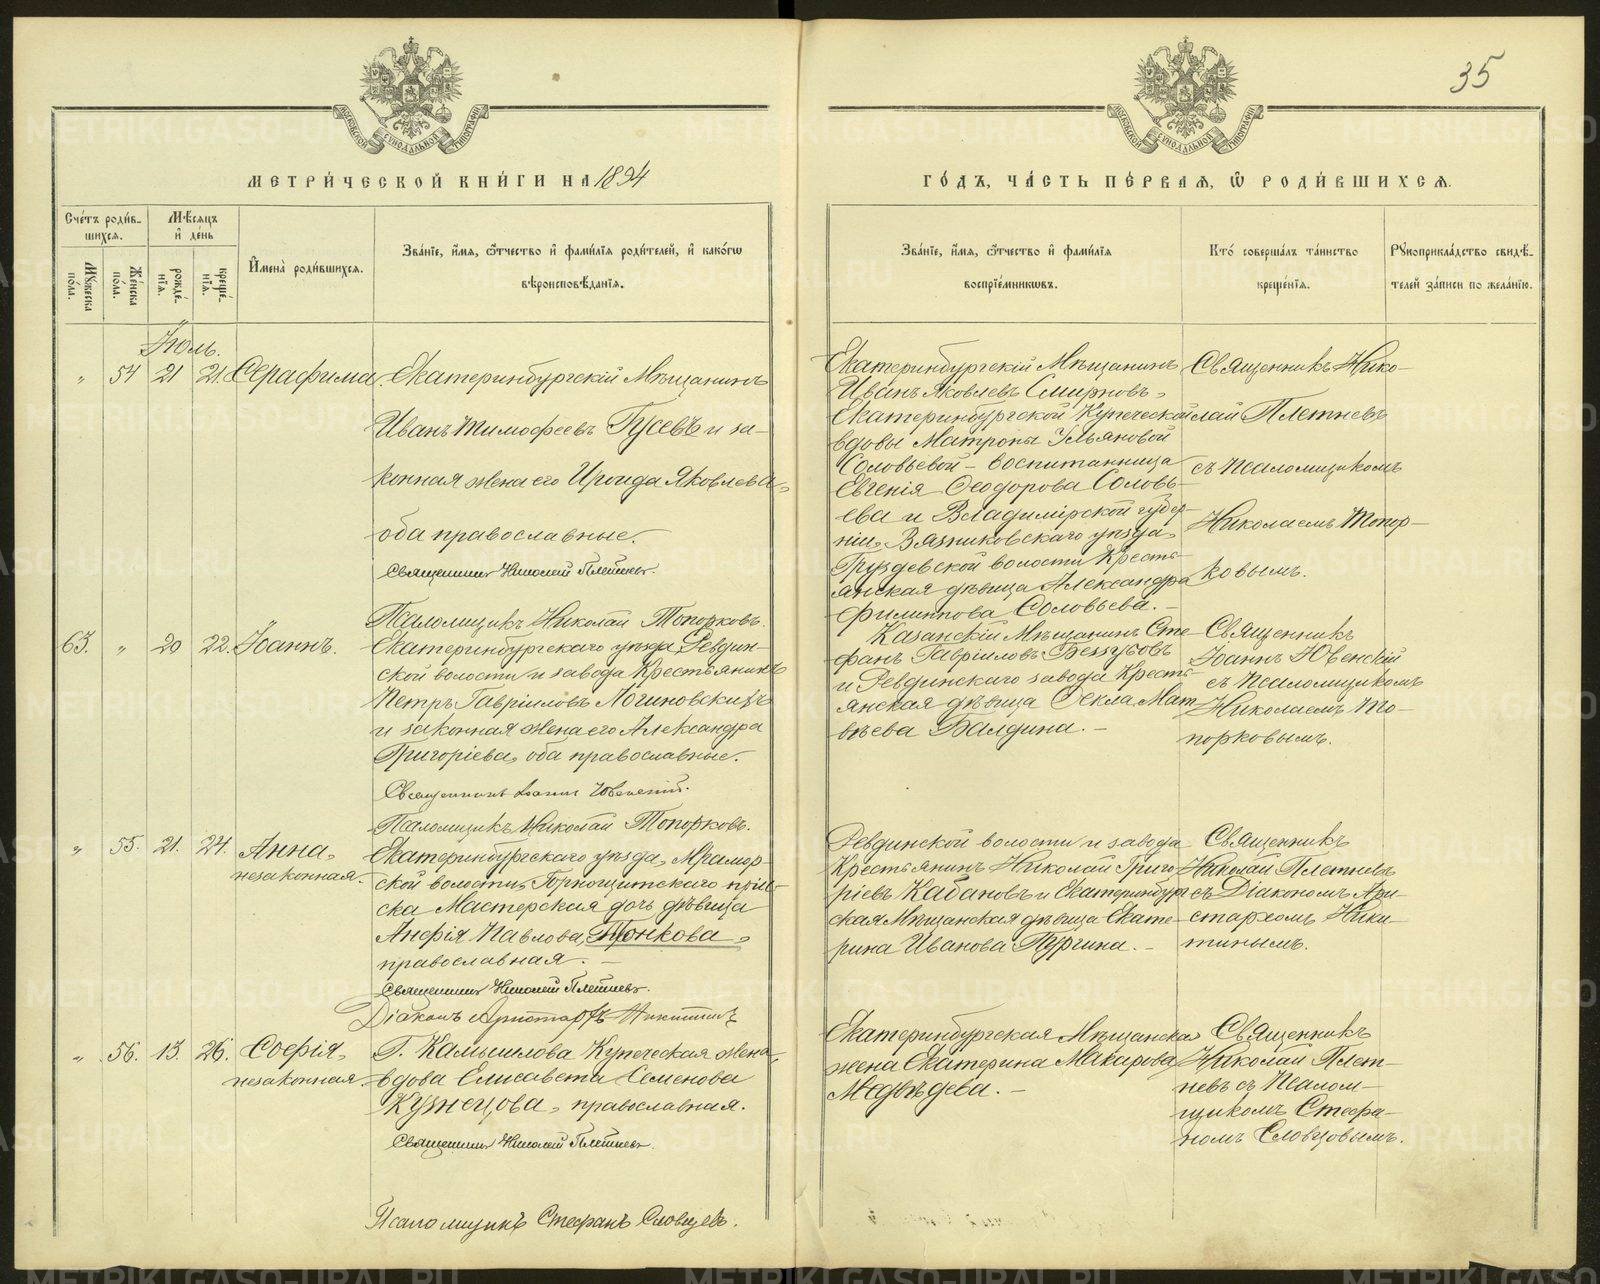 35
МЕТРИ́ЧЕСКОЙ КНИ́ГИ НА 1894
ГО́ДЪ, ЧА́СТЬ ПЕ́РВАЯ, Ѡ РОДИ́ВШИХСЯ.
Сче́тъ роди́в-
шихся.
Мѣ́сяцъ
и҆ де́нь
Мꙋ́жеска по́ла.
Же́нска по́ла.
рожде́-
нїя.
креще́-
нїя.
И҆мена̀ роди́вшихся.
Зва́нїе, и҆́мя, ѻ҆́тчество и҆ фами́лїя роди́телей, и҆ како́гѡ
вѣроисповѣ́данїя.
Зва́нїе, и҆́мя, ѻ҆́тчество и҆ фами́лїя
воспрїе́мникѡвъ.
Кто́ соверша́лъ та́инство
креще́нїя.
Рꙋкоприкла́дство свидѣ́-
телей за́писи по жела́нїю.
Іюль.
„ 54 21 21. Серафима.
Екатеринбургскій Мѣщанинъ
Иванъ Тимофеевъ Гусевъ и за-
конная жена его Ироида Яковлева,
оба православные.
Священникъ Николай Плетневъ.
Псаломщикъ Николай Топорковъ.
Екатеринбургскій Мѣщанинъ
Иванъ Яковлевъ Смирновъ,
Екатеринбургской Купеческой
вдовы Матроны Ульяновой
Соловьевой – воспитанница
Евгенія Ѳеодорова Соловь-
ева и Владимірской губер-
ніи, Вязниковскаго уѣзда,
Груздевской волости Кресть-
янская дѣвица Александра
Филиппова Соловьева. –
Священникъ Нико-
лай Плетневъ
съ Псаломщикомъ
Николаемъ Топор-
ковымъ.
63. „ 20 22. Іоаннъ.
Екатеринбургскаго уѣзда, Ревдин-
ской волости и завода Крестьянинъ
Петръ Гавріиловъ Логиновскихъ
и законная жена его Александра
Григоріева, оба православные.
Священникъ Іоаннъ Ювенскій.
Псаломщикъ Николай Топорковъ.
Казанскій Мѣщанинъ Сте-
фанъ Гавріиловъ Беззубовъ
и Ревдинскаго завода Кресть-
янская дѣвица Ѳекла Мат-
вѣева Балдина. –
Священникъ
Іоаннъ Ювенскій
съ Псаломщикомъ
Николаемъ То-
порковымъ.
„ 55. 21. 24. Анна,
незаконная.
Екатеринбургскаго уѣзда, Мрамор-
ской волости, Горнощитскаго пріи-
ска Мастерская дочь дѣвица
Анфія Павлова Тонкова,
православная. –
Священникъ Николай Плетневъ.
Діаконъ Аристархъ Никитинъ
Ревдинской волости и завода
Крестьянинъ Николай Григо-
ріевъ Кабановъ и Екатеринбург-
ская Мѣщанская дѣвица Екате-
рина Иванова Пургина. –
Священникъ
Николай Плетневъ
съ Діакономъ Ари-
стархомъ Ники-
тинымъ.
„ 56. 13. 26. Софія,
незаконная.
Г. Камышлова Купеческая жена,
вдова Елисавета Семенова
Кузнецова, православная.
Священникъ Николай Плетневъ.
Псаломщикъ Стефанъ Словцовъ.
Екатеринбургская Мѣщанская
жена Екатерина Макарова
Медвѣдева. –
Священникъ
Николай Плет-
невъ съ Псалом-
щикомъ Стефа-
номъ Словцовымъ.